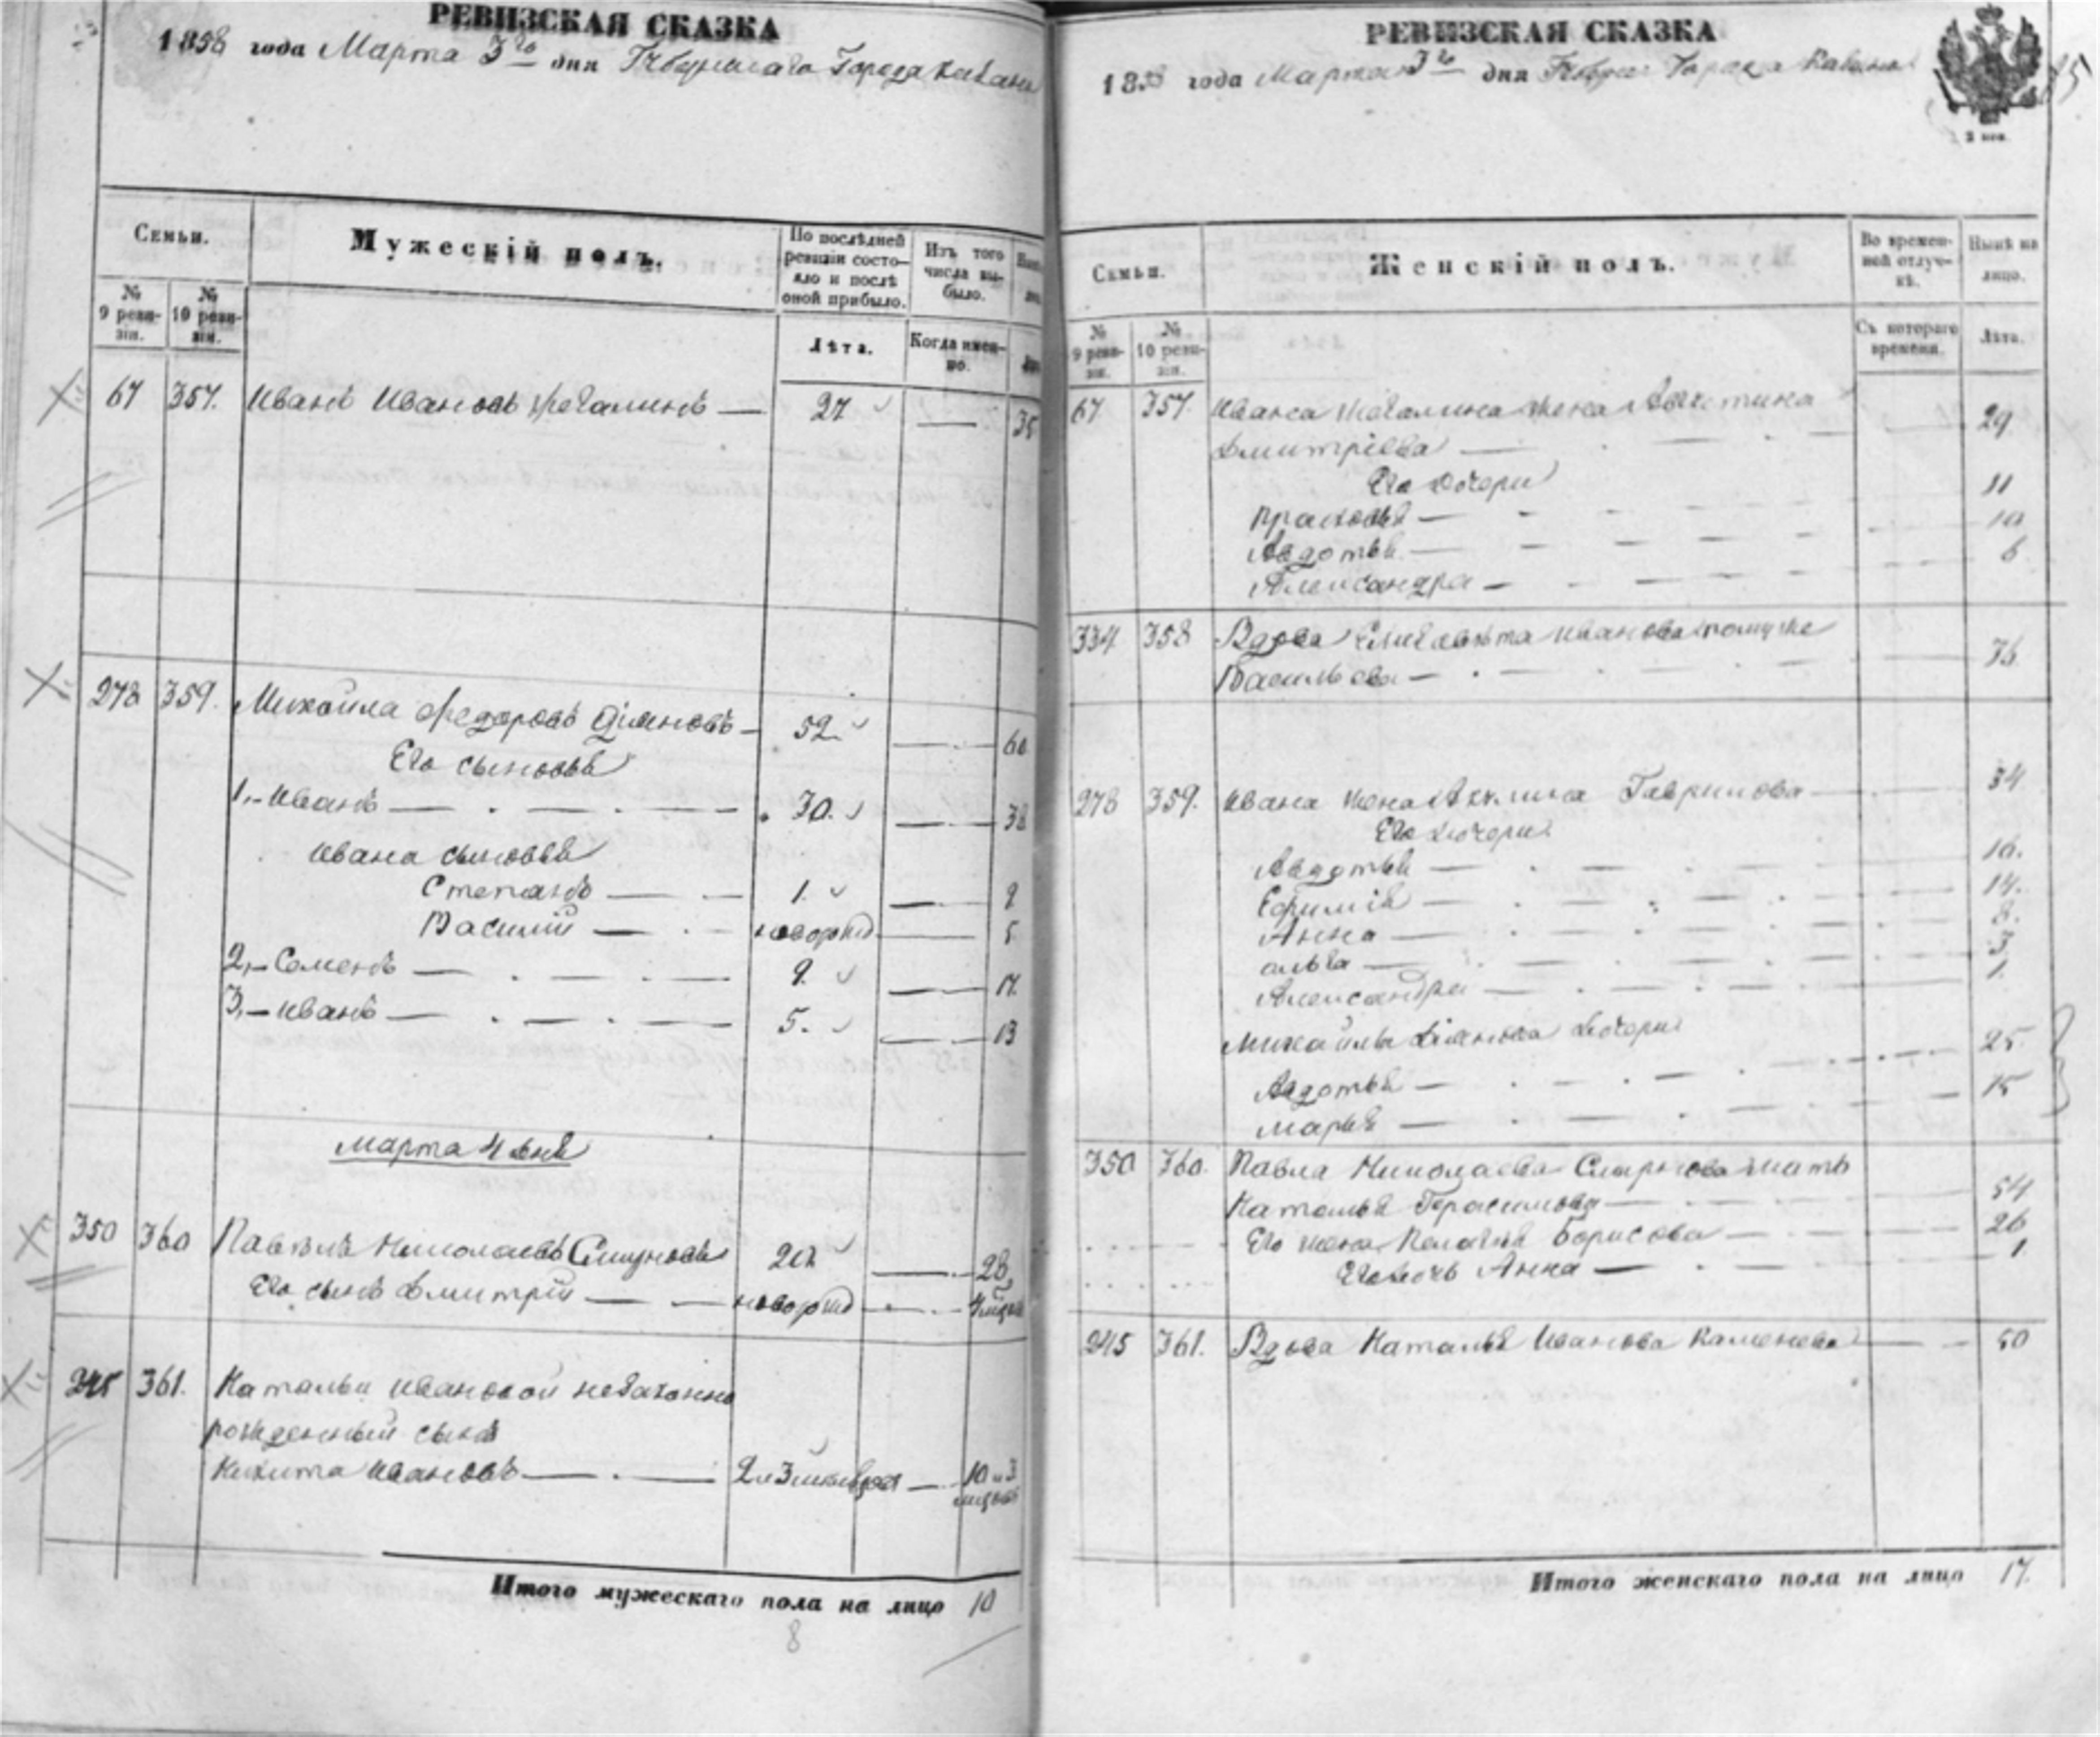 РЕВИЗСКАЯ СКАЗКА
1858 года Марта 3го дня Города Казани
Семьи.
Мужескій полъ.
По послѣдней ревизіи состояло и послѣ оной прибыло.
Изъ того числа выбыло.
№ 9 ревизіи.
№ 10 ревизіи.
Лѣта.
Когда именно.
67 357. Иванъ Ивановъ — 27 — 35
278 359. Михайла Федоровъ — 52 — 60
Его сыновья
1,- Иванъ — 30. — 38
Ивана сыновья
Степанъ — 1. — 9
Василій — новорожд — 5
2,- Семенъ — 9. — 17.
3,- Иванъ — 5. — 13
Марта 4 дня
350 360 Павелъ Николаевъ 20 — 28
Его сынъ Дмитрій — новорожд —
245 361. Натальи Ивановой незаконно
рожденный сынъ
Никита Ивановъ —
Итого мужескаго пола на лицо 10
8
РЕВИЗСКАЯ СКАЗКА
1858 года Марта 3го дня Города Казани
Семьи.
Женскій полъ.
Во временной отлучкѣ.
Нынѣ на лицо.
№ 9 ревизіи.
№ 10 ревизіи.
Съ котораго времени.
Лѣта.
67. 357. Ивана жена 29
Дмитріева —
Его дочери
Прасковья — 11
Авдотья — 10
Александра — 6
334 358 Вдова Елизавета Иванова по муже
Васильева — 76
278 359. Ивана жена Акулина Гаврилова — 34
Его дочери
Авдотья — 16.
Ефимія — 14.
Анна — 8.
3
Александра — 1.
Михайлы дочери
Авдотья — 25
Марья — 15
350 360. Павла Николаева мать
Наталья Герасимова — 54
Его жена Пелагея Борисова — 26
Его дочь Анна — 1
245 361. Вдова Наталья Иванова Каменева — 50
Итого женскаго пола на лицо 17.